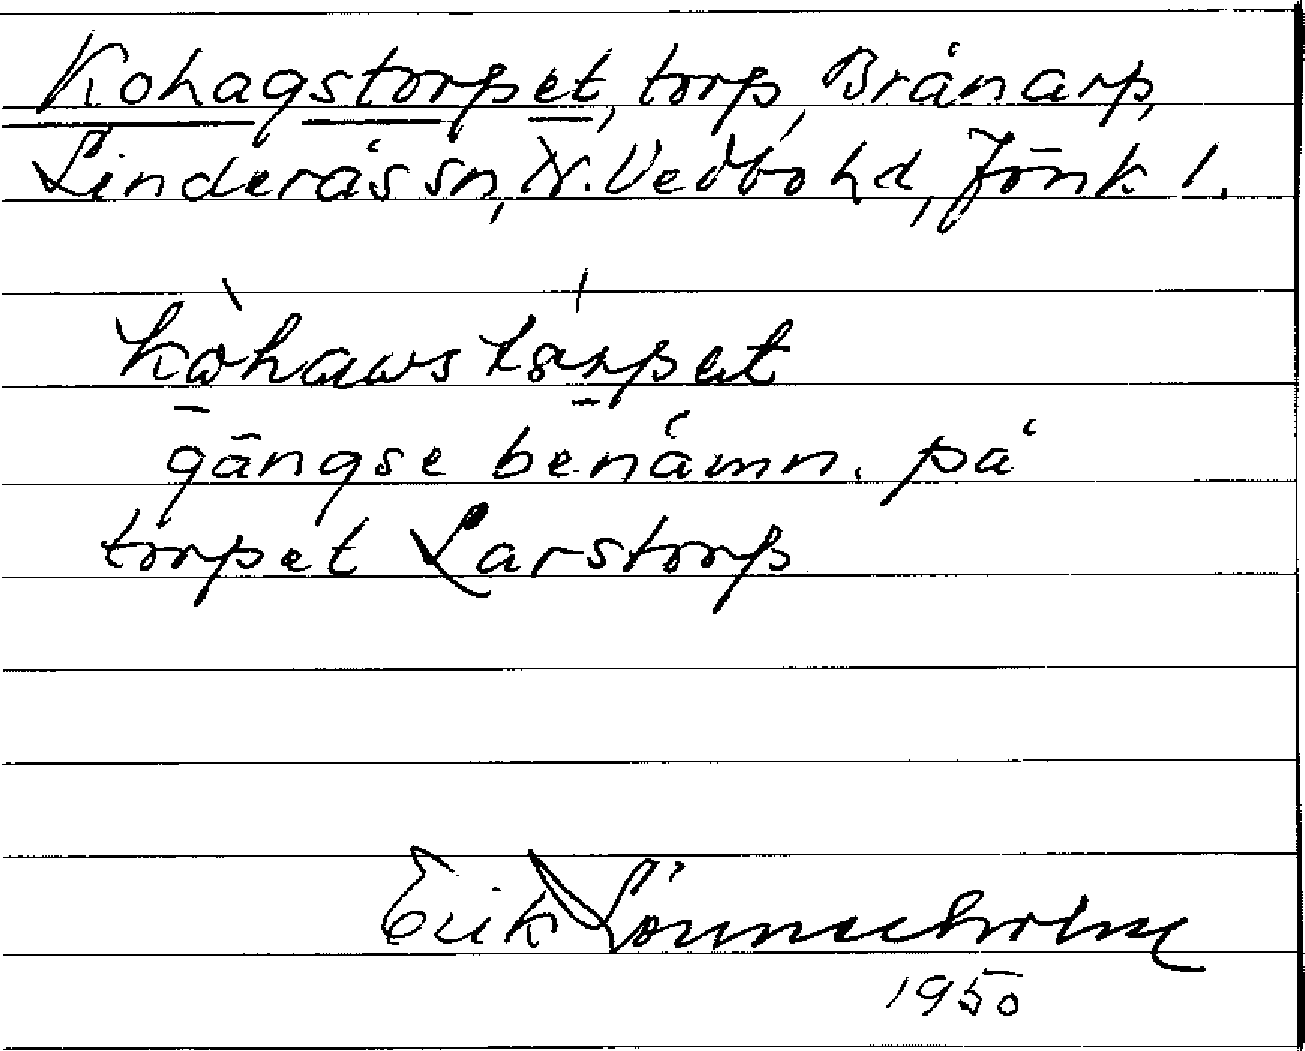 Kohagstorpet, torp, Brånarp,
Linderås sn, N. Vedbo hd, Jönk l.
kòhaws tórpet
gängse benämn. på
torpet Larstorp
Erik Lönnerholm
1950